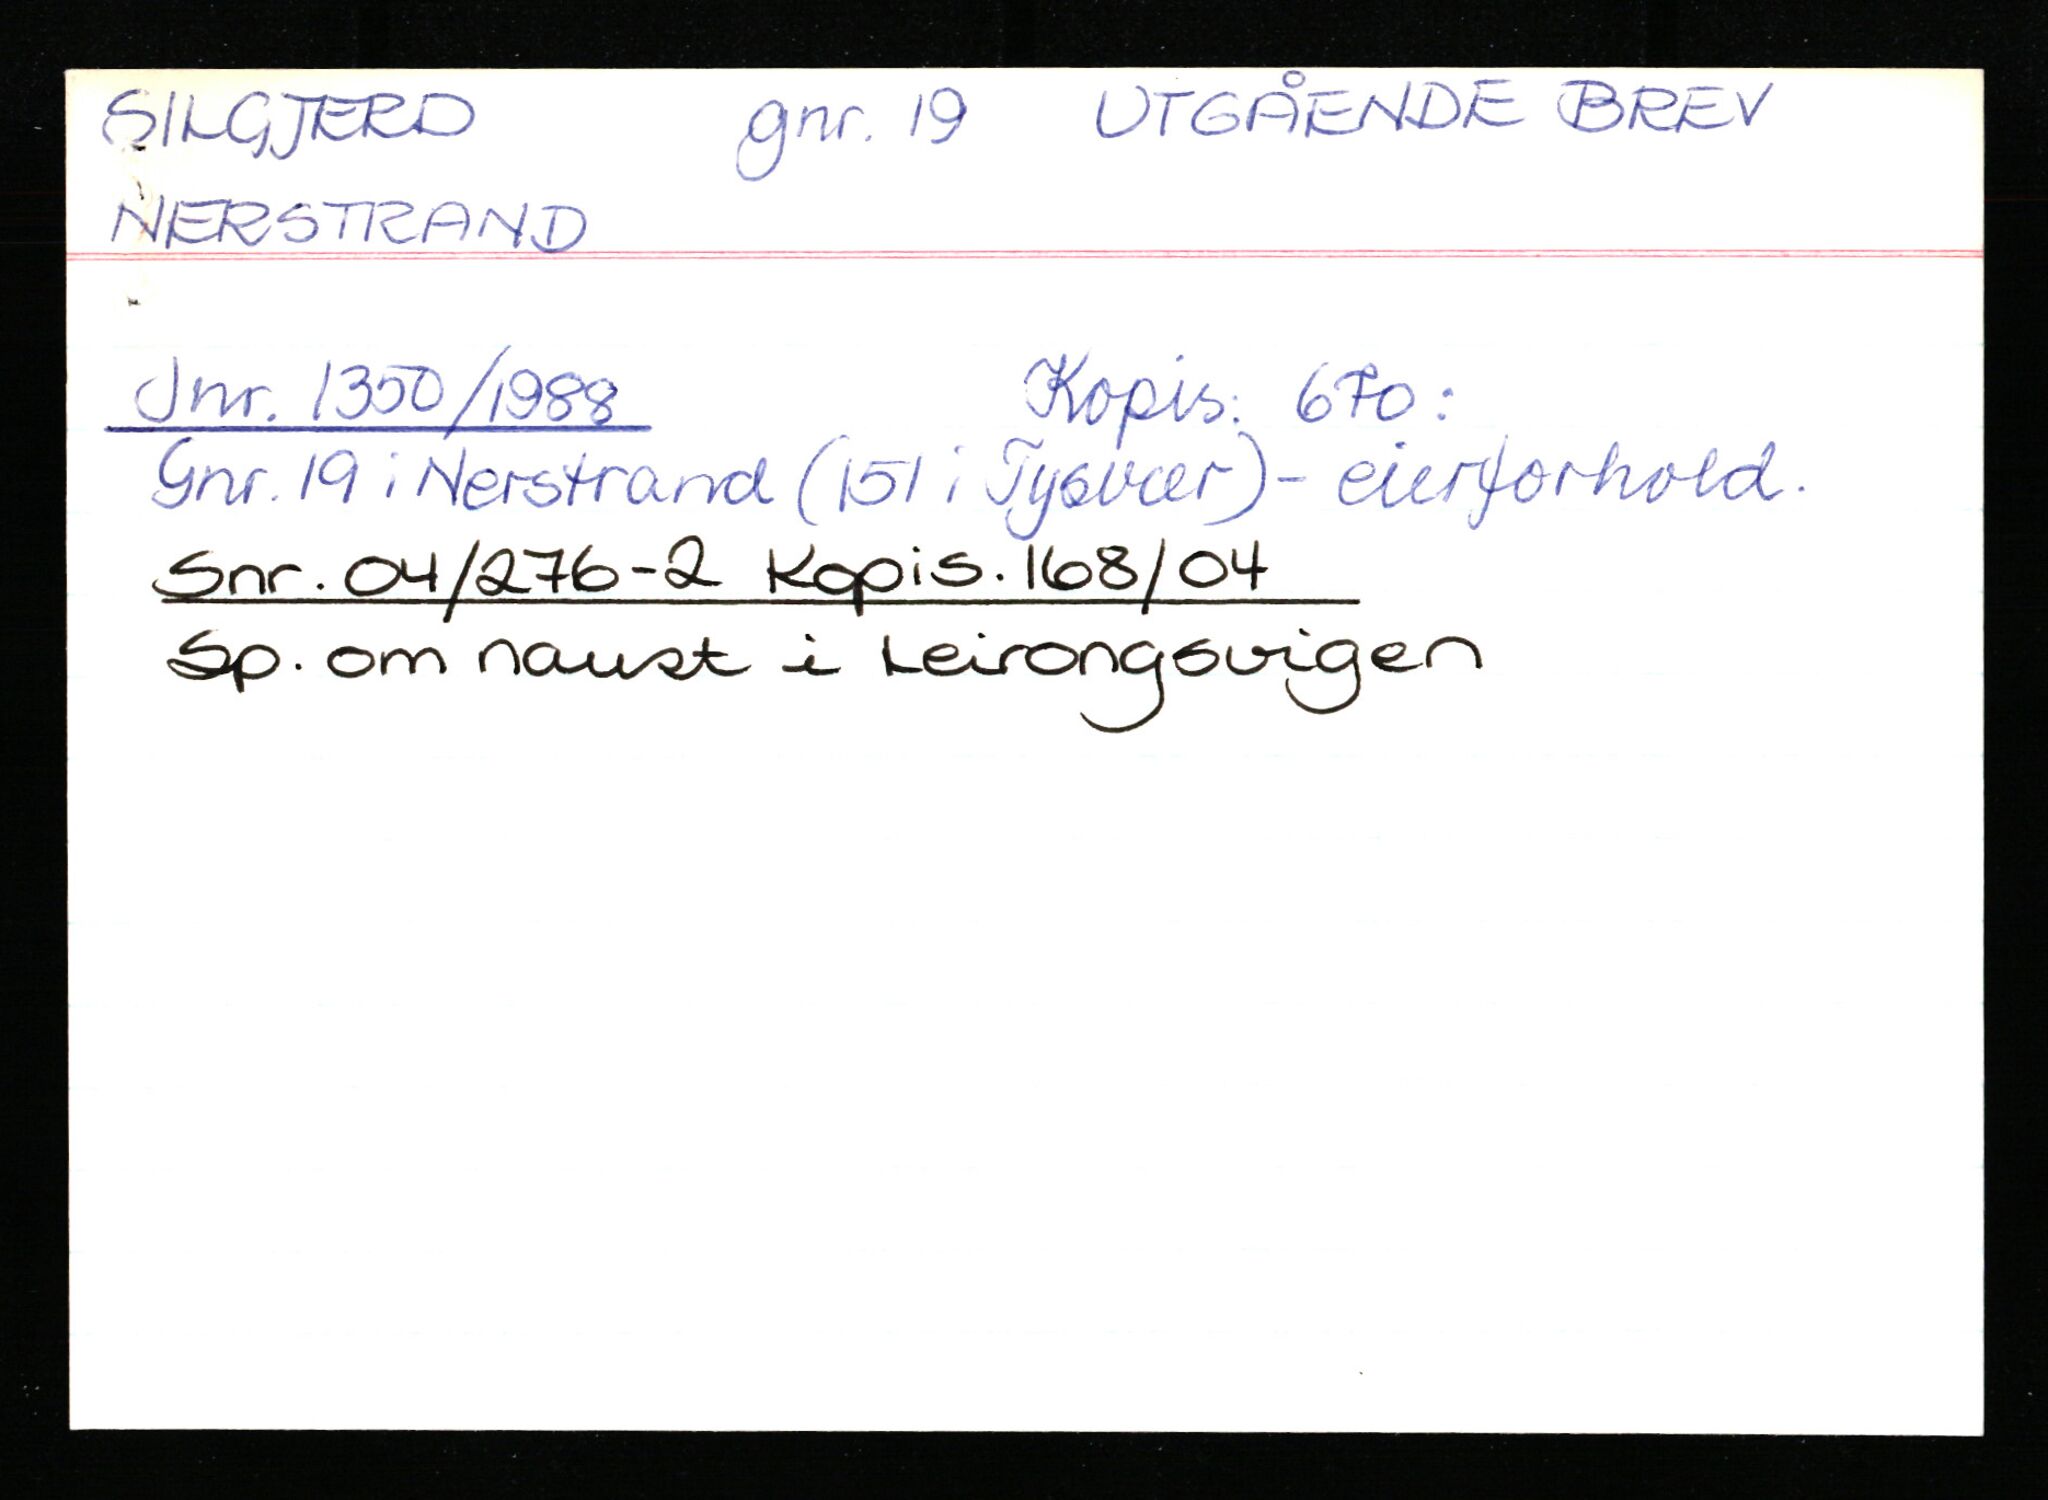 SILGJERD gnr. 19 UTGÅENDE BREV
NERSTRAND
Jnr. 1350/1988 Kopis: 670:
Gnr. 19 i Nerstrand (151 i Tysvær) - eierforhold.
Snr. 04/276-2 Kopis. 168/04
Sp. om naust i Leirongsvigen